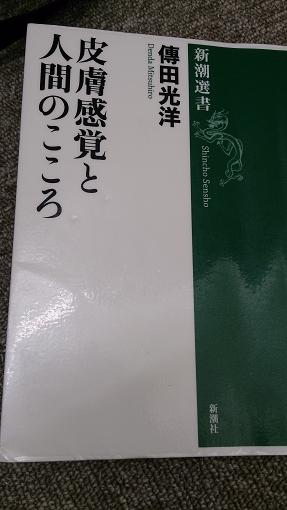 皮膚感覚と
人間のこころ
傳田光洋
Denda Mitsuhiro
新潮選書
Shincho Sensho
新潮社